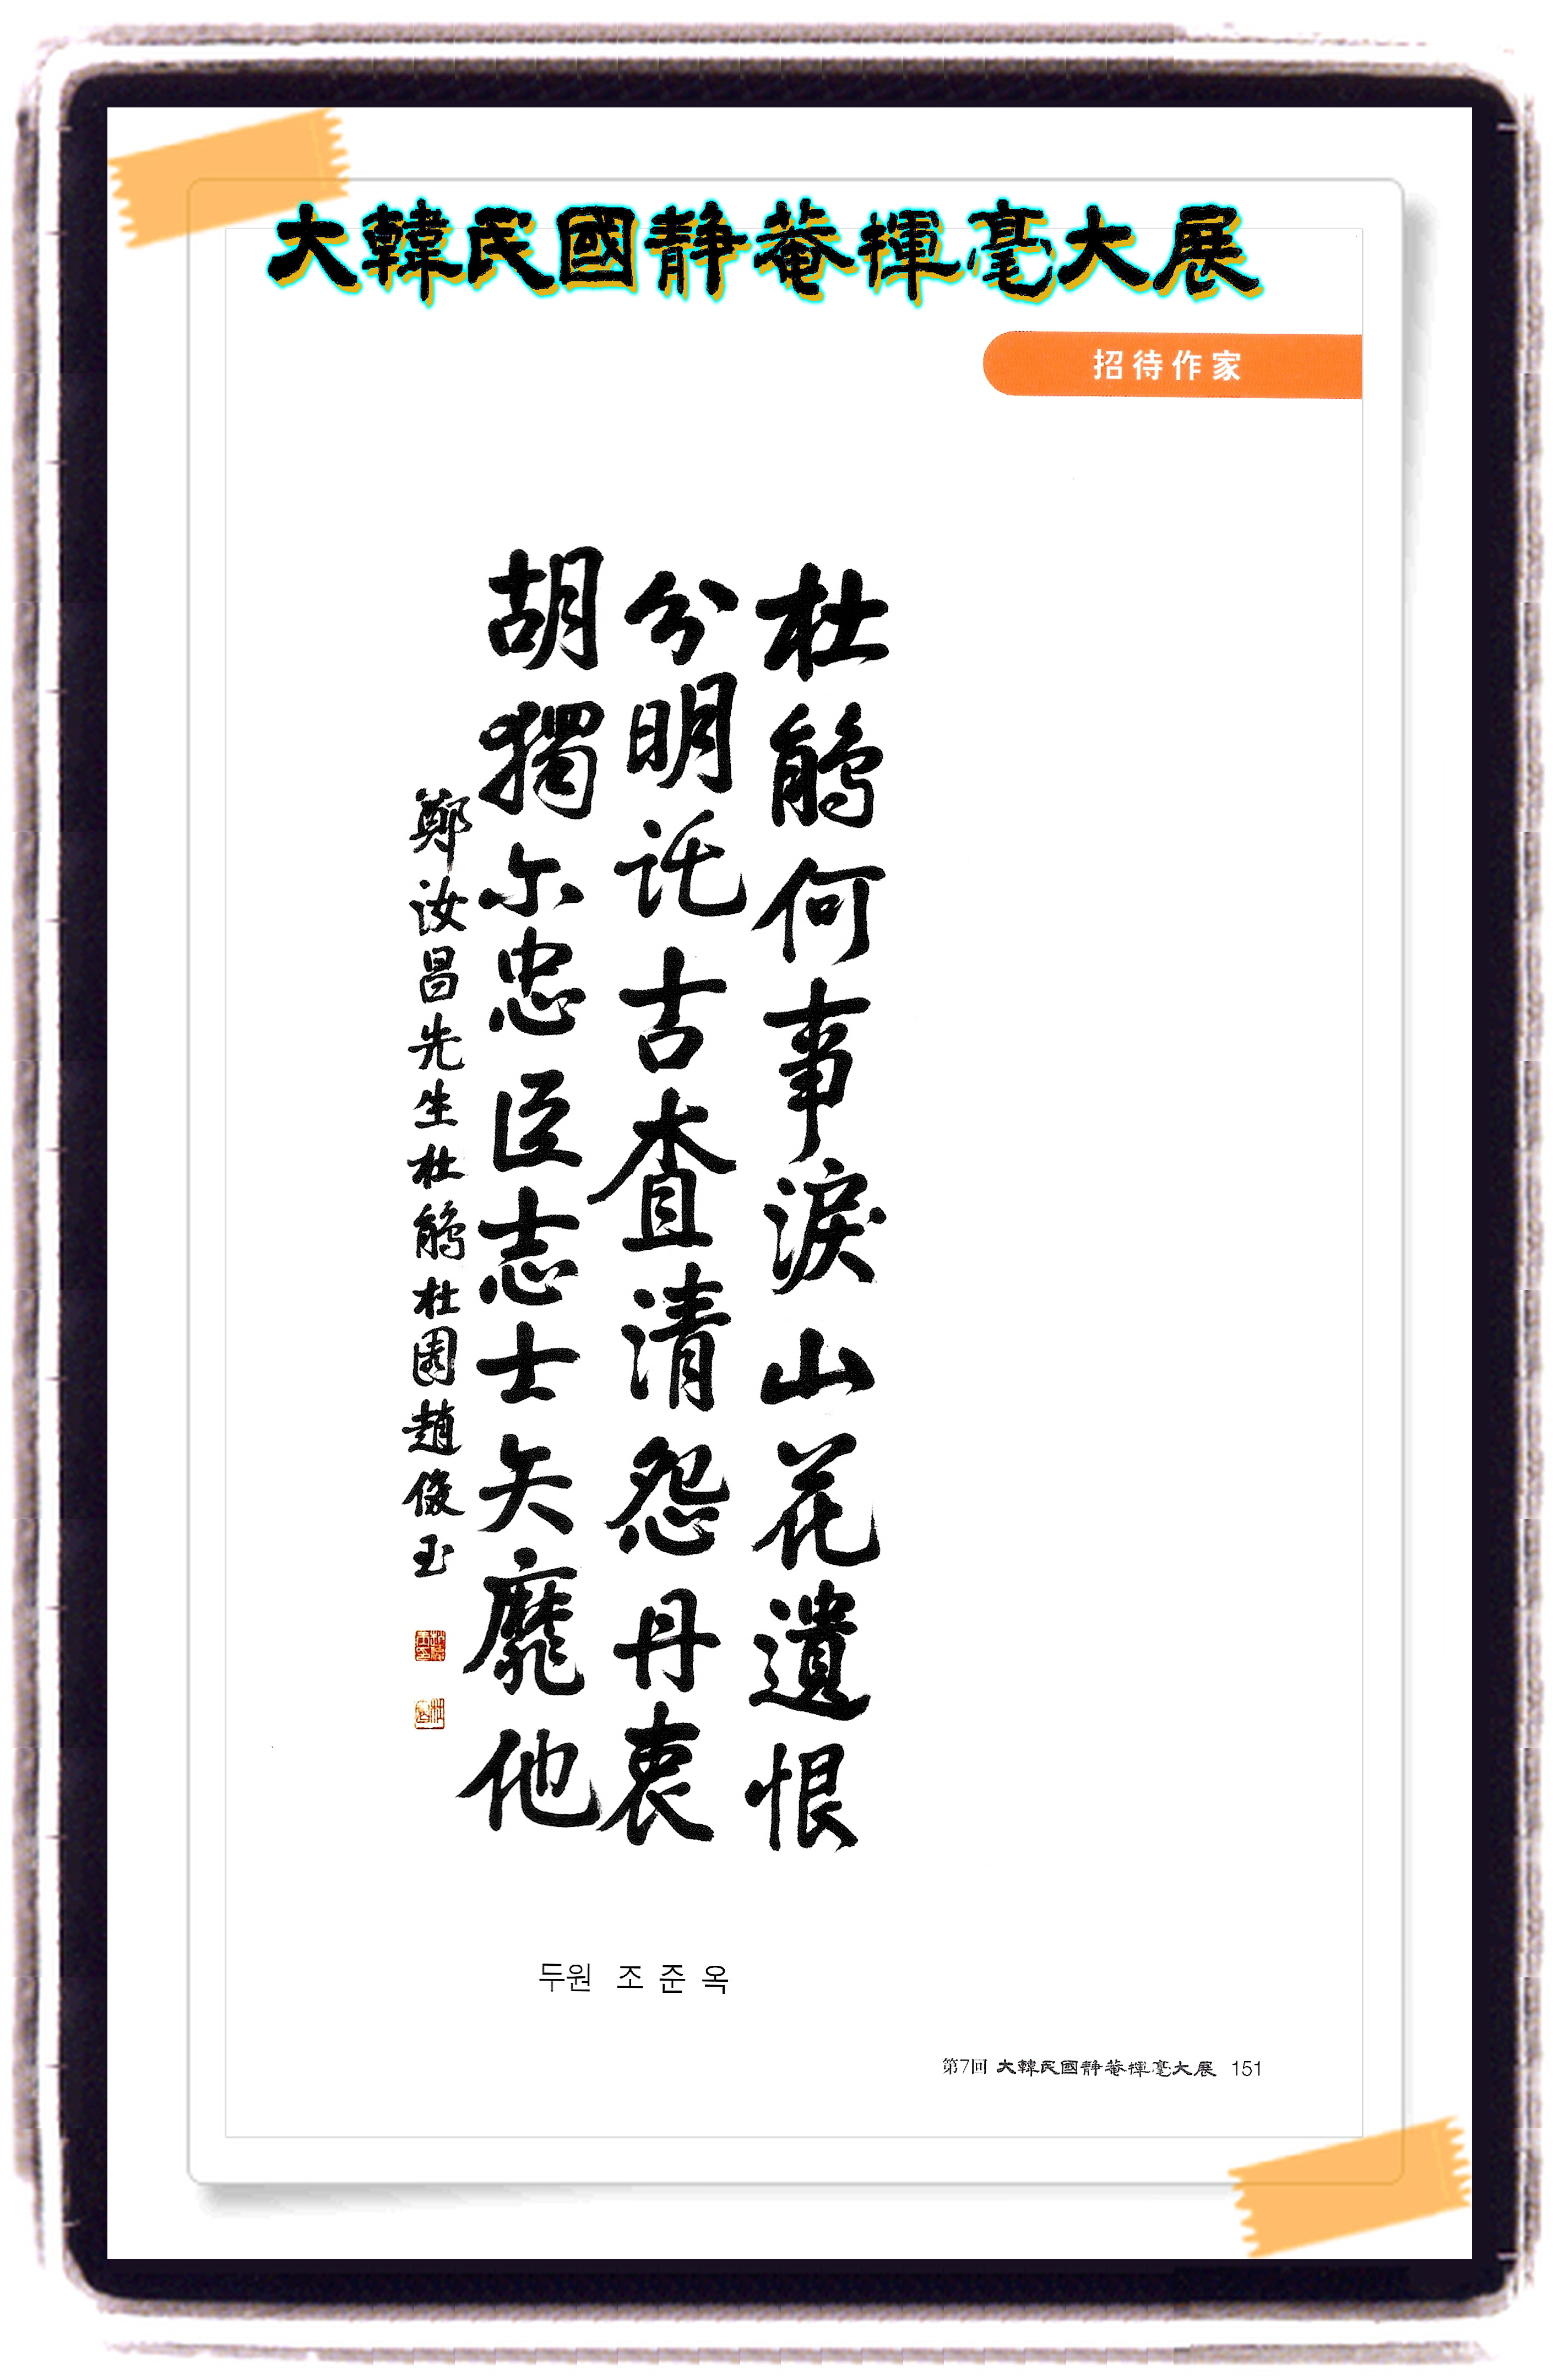 大韓民國靜菴揮毫大展
招待作家
杜鵑何事淚山花遺恨
分明託古查清怨丹衷
胡獨尒忠臣志士矢靡他
鄭汝昌先生杜鵑杜園趙俊玉
두원 조준옥
第7回 大韓民國靜菴揮毫大展 151